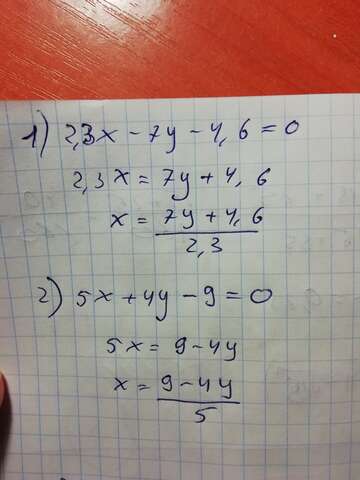 1) 2,3x - 7y - 4,6 = 0
2,3x = 7y + 4,6
x = 7y + 4,6
2,3
2) 5x + 4y - 9 = 0
5x = 9 - 4y
x = 9 - 4y
5